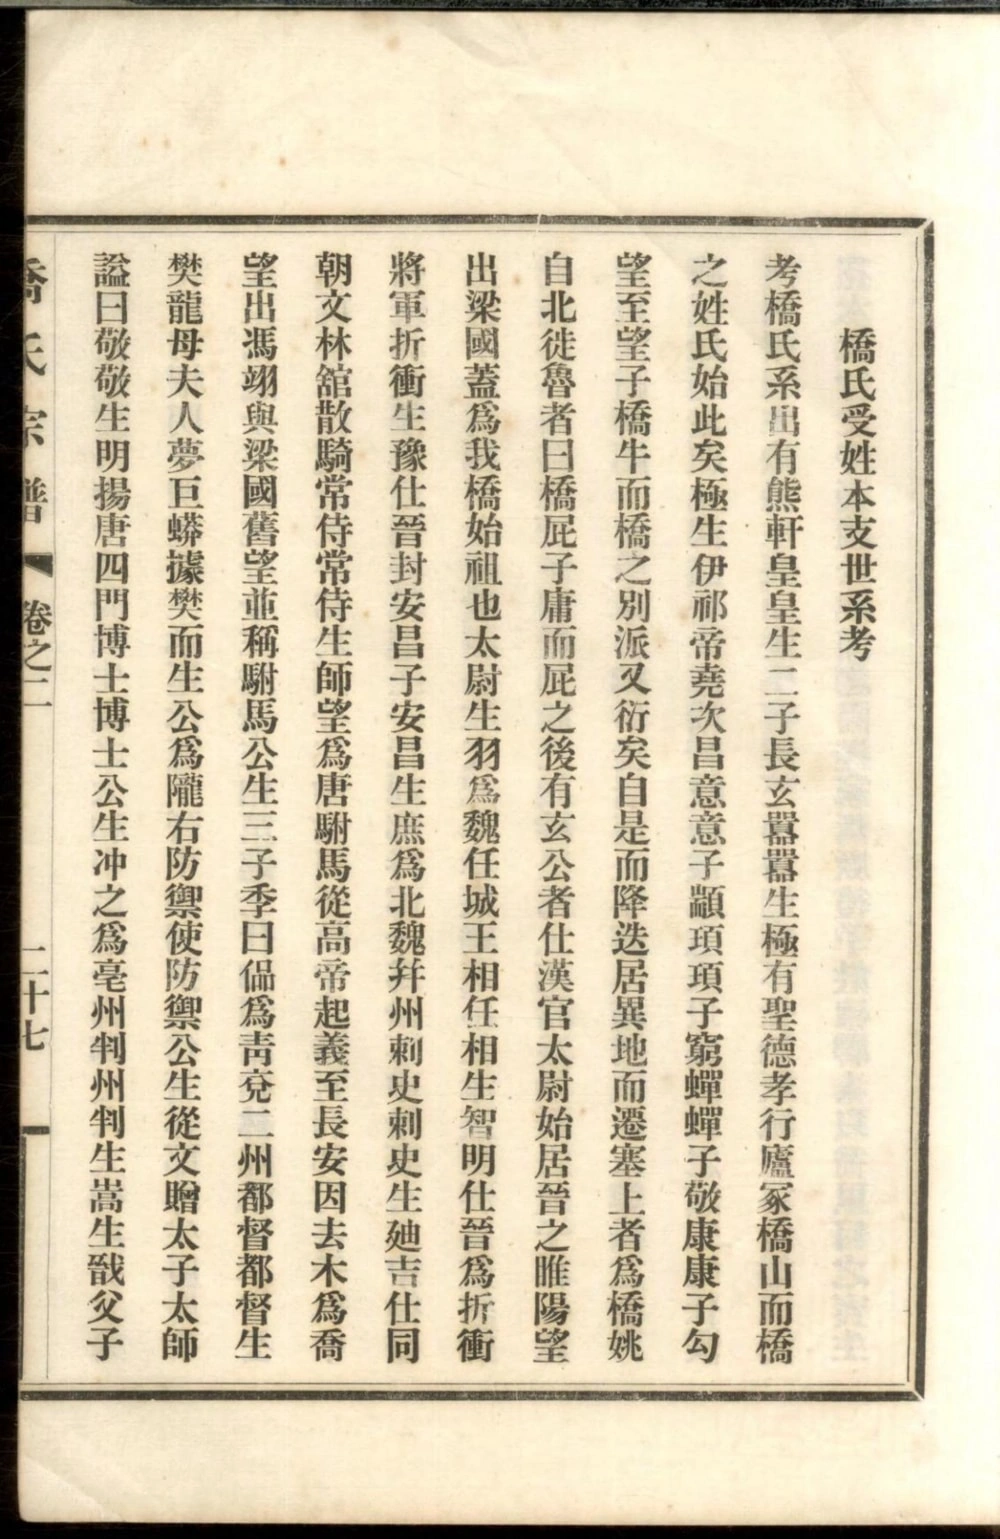 橋氏受姓本支世系考
考橋氏系出有熊軒皇皇生二子長玄囂囂生極有聖德孝行廬冢橋山而橋
之姓氏始此矣極生伊祁帝堯次昌意意子顓頊頊子窮蟬蟬子敬康康子勾
望至望子橋牛而橋之別派又衍矣自是而降迭居異地而遷塞上者爲橋姚
自北徙魯者曰橋庇子庸而庇之後有玄公者仕漢官太尉始居晉之睢陽望
出梁國蓋爲我橋始祖也太尉生羽爲魏任城王相任相生智明仕晉爲折衝
將軍折衝生豫仕晉封安昌子安昌生庶爲北魏幷州刺史刺史生廸吉仕同
朝文林舘散騎常侍常侍生師望爲唐駙馬從高帝起義至長安因去木爲喬
望出馮翊與梁國舊望並稱駙馬公生三子季曰偘爲靑兗二州都督都督生
樊龍母夫人夢巨蟒據樊而生公爲隴右防禦使防禦公生從文贈太子太師
諡曰敬敬生明揚唐四門博士博士公生冲之爲亳州判州判生嵩生戩父子
喬氏宗譜 卷之二 二十七